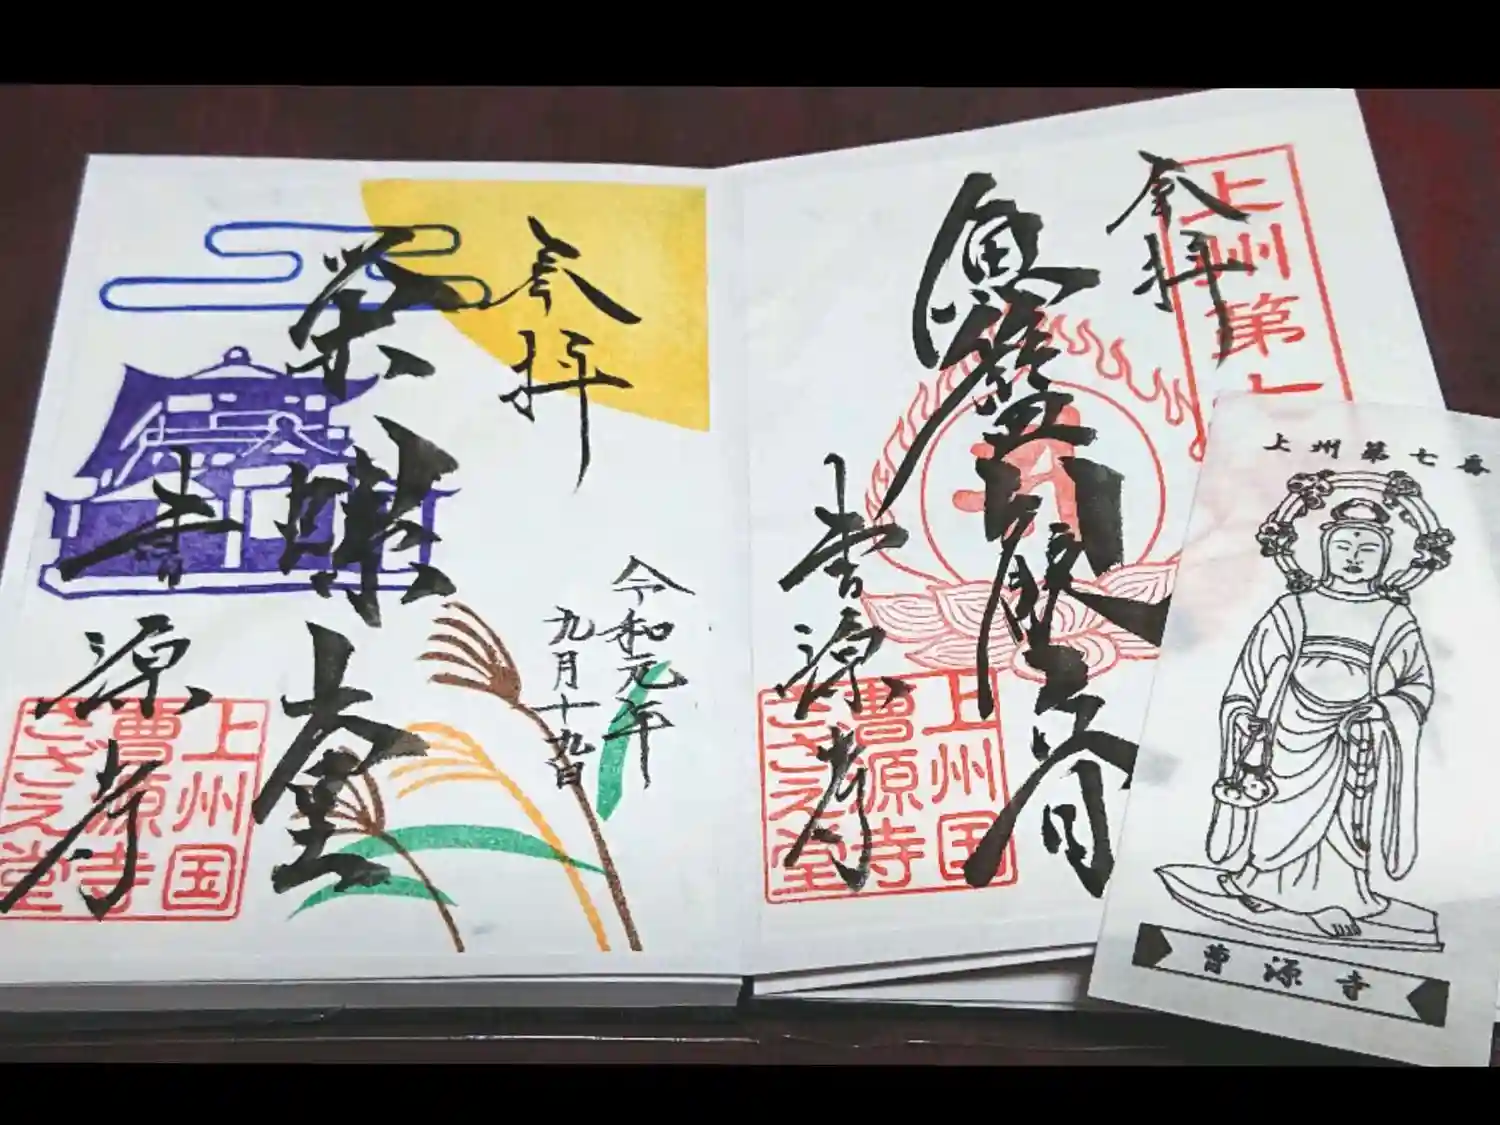 奉拝
令和元年
九月十九日
栄螺堂
曹源寺
上州国
曹源寺
さざえ堂
奉拝
上州第七
魚籃観世音
曹源寺
上州国
曹源寺
さざえ堂
上州第七番
曹源寺